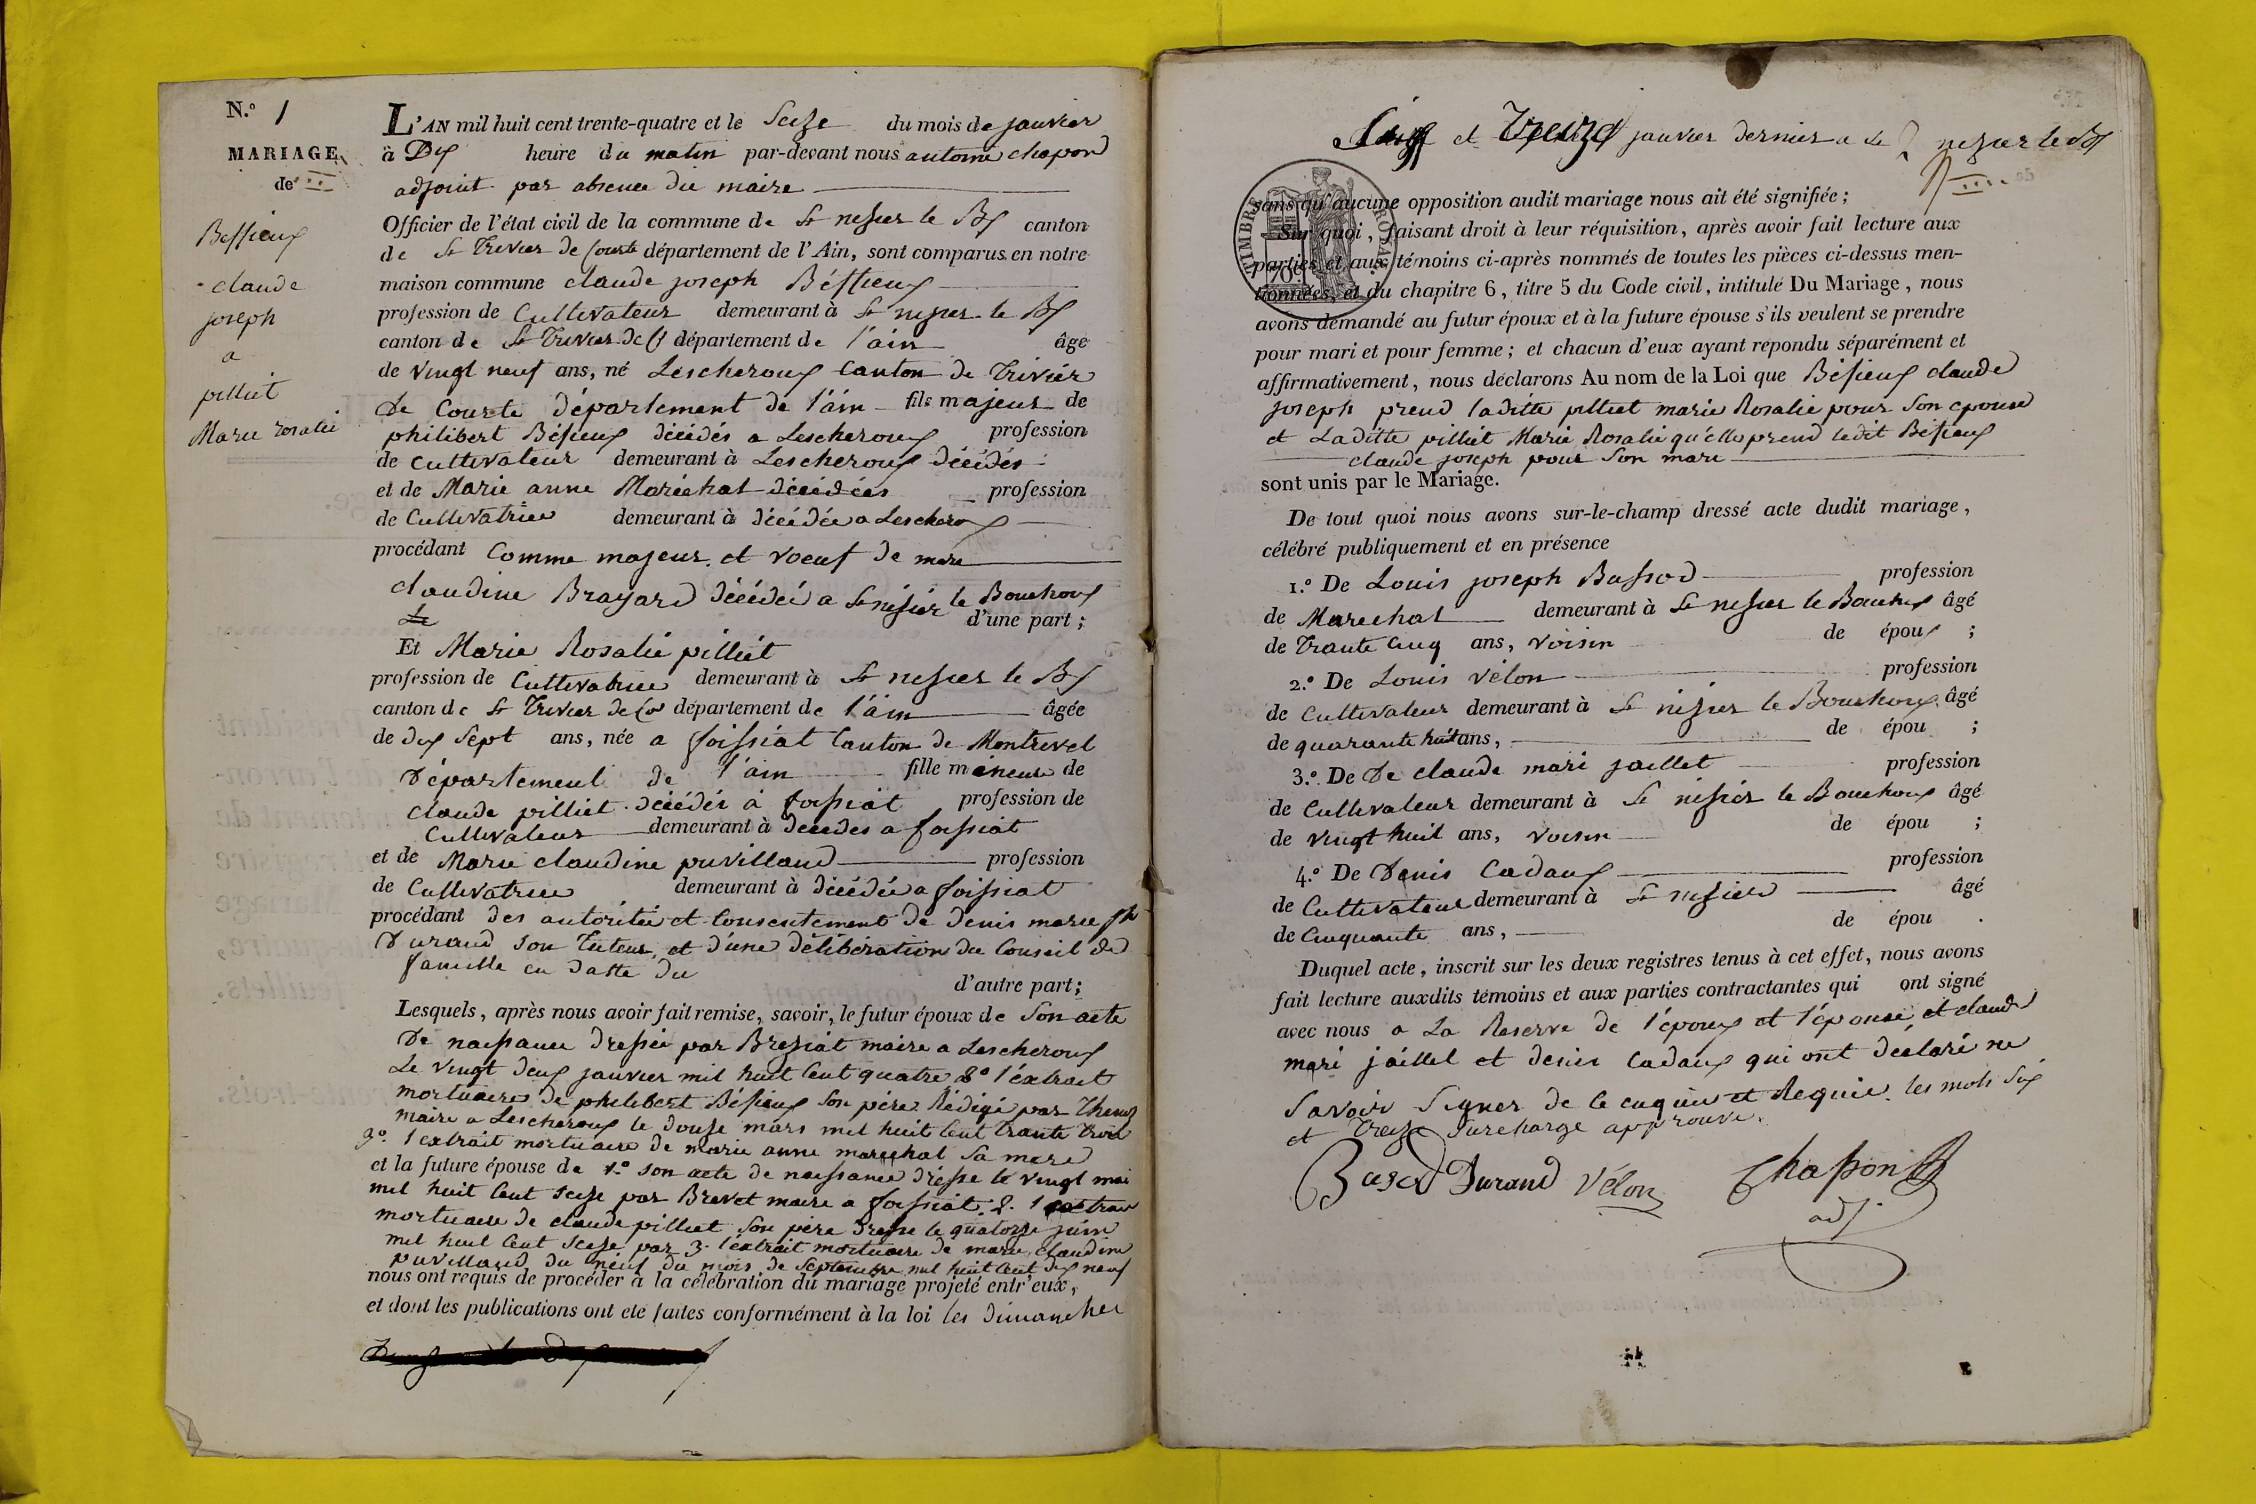 N.º 1
MARIAGE
de
Bessieux
claude
joseph
a
pilliet
Marie rosalie
L'AN mil huit cent trente-quatre et le Seize du mois de janvier
à Dix heure du matin par-devant nous antoine chapon
adjoint par absence du maire
Officier de l'état civil de la commune de St nesier le Bx canton
de St Trivier de Courte département de l'Ain, sont comparus en notre
maison commune claude joseph Béssieux
profession de Cultivateur demeurant à St nesier le Bx
canton de St Trivier de C département de l'ain âgé
de vingt neuf ans, né Lescheroux Canton de Trivier
De Courte département de l'ain fils majeur de
philibert Bésieux décédés a Lescheroux profession
de cultivateur demeurant à Lescheroux décédés
et de Marie anne Maréchal décédées profession
de Cultivatrice demeurant à décédée a Lescheroux
procédant Comme majeur et voeuf de
claudine Brayard décédée a St nésier le Bouchoux
d'une part ;
Et Marie Rosalie pilliét
profession de Cultivatrice demeurant à St nesier le Bx
canton de St Trivier de Cou département de l'ain âgée
de dix sept ans, née a foissiat Canton de Montrevel
Département de l'ain fille mineure de
claude pilliet décédés à foissiat profession de
Cultivateur demeurant à décédés a foissiat
et de Marie claudine puvilland profession
de Cultivatrice demeurant à décédée a foissiat
procédant des autoritée et Consentement de denis marie
Durand son Tuteur, et d'une délibération du Conseil de
famille en datte du
d'autre part ;
Lesquels, après nous avoir fait remise, savoir, le futur époux de Son acte
De naissance dressée par Bresiat maire a Lescheroux
Le vingt deux janvier mil huit Cent quatre 2º l'éxtrait
mortuaire de philibert Bésieux Son père Rédigé par
maire a Lescheroux le douse mars mil huit Cent trante trois
3º. l'extrait mortuaire de marie anne marechal Sa mere
et la future épouse de 1.º son acte de naissance dréssé le vingt mai
mil huit Cent seise par Brevet maire a foissiat. 2. l'extrait
mortuaire de claude pilliet Son père dressé le quatorze juin
mil huit Cent seise par 3. l'éxtrait mortuaire de marie claudine
puvilland du neuf du mois de Septembre mil huit Cent dix neuf
nous ont requis de procéder à la célébration du mariage projeté entr'eux,
et dont les publications ont été faites conformément à la loi les dimanches
et Treize janvier dernier a St nesier le Bx
TIMBRE ROYAL
sans qu'aucune opposition audit mariage nous ait été signifiée ;
Sur quoi, faisant droit à leur réquisition, après avoir fait lecture aux
parties et aux témoins ci-après nommés de toutes les pièces ci-dessus men-
tionnées, et du chapitre 6, titre 5 du Code civil, intitulé Du Mariage, nous
avons demandé au futur époux et à la future épouse s'ils veulent se prendre
pour mari et pour femme ; et chacun d'eux ayant répondu séparément et
affirmativement, nous déclarons Au nom de la Loi que Bésieux claude
joseph prend laditte pilliet marie Rosalie pour Son epouse
et Laditte pilliet Marie Rosalie qu'elle prend ledit Bésieux
claude joseph pour Son mari
sont unis par le Mariage.
De tout quoi nous avons sur-le-champ dressé acte dudit mariage,
célébré publiquement et en présence
1.º De Louis joseph Bassod profession
de Marechal demeurant à St nesier le Bouchoux âgé
de Trante Cinq ans, voisin de époux ;
2.º De Louis vélon profession
de Cultivateur demeurant à St nisier le Bouchoux âgé
de quarante huit ans, de épou ;
3.º De De claude mari jaillet profession
de Cultivateur demeurant à St nisier le Bouchoux âgé
de vingt huit ans, voisin de épou ;
4.º De Denis Cadaux profession
de Cultivateur demeurant à St nisier âgé
de Cinquante ans, de épou .
Duquel acte, inscrit sur les deux registres tenus à cet effet, nous avons
fait lecture auxdits témoins et aux parties contractantes qui ont signé
avec nous a La Reserve de l'époux et l'épouse, et claude
mari jaillet et denis Cadaux qui ont déclaré ne
Savoir Signer de ce enquis et Requis. les mots Six
et Treize Surcharge approuvé.
Durand Vélon Chapon
adj.